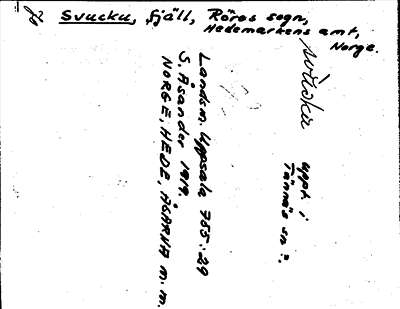 Svucku, fjäll, Röros sogn,
Hedemarkens amt,
Norge.
uppt. i
Tännäs sn.
Landsm. Uppsala 755:29
S. Åsander 1919.
NORGE, HEDE, ÅSARNA m.m.